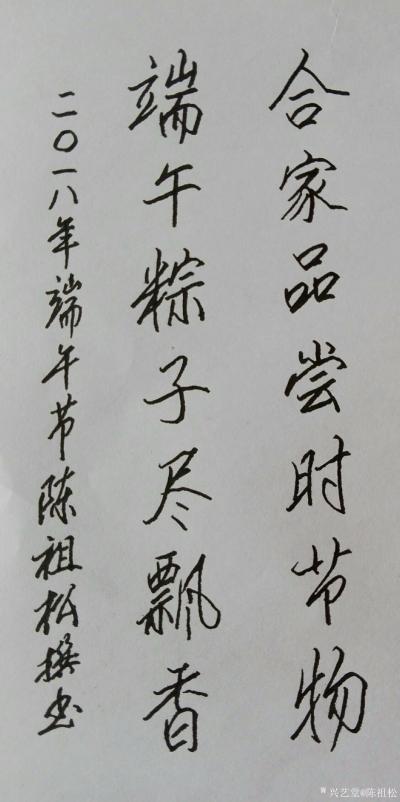 合家品尝时节物
端午粽子尽飘香
二〇一八年端午节陈祖松撰书
兴艺堂@陈祖松